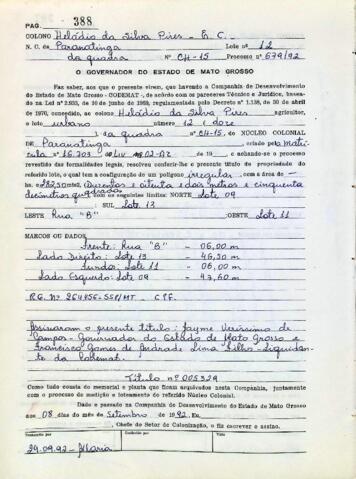 PAG. 388
COLONO Helódio da Silva Pires - E. C.
N. C. de Paranatinga Lote nº 12
da quadra CH-15 Processo nº 679/92
O GOVERNADOR DO ESTADO DE MATO GROSSO
Faz saber, aos que o presente virem, que havendo a Companhia de Desenvolvimento
do Estado de Mato Grosso - CODEMAT -, de acordo com os pareceres Técnico e Jurídico, basea-
do na Lei nº 2.933, de 10 de junho de 1969, regulamentada pelo Decreto nº 1.138, de 30 de abril
de 1970, concedido, ao colono Helódio da Silva Pires agricultor,
o lote urbano número 12 (doze
) da quadra nº CH-15, do NÚCLEO COLONIAL
DE Paranatinga criado pela Matrí-
cula nº 16.703 Lv 02-AZ de 19 e achando-se o processo
revestido das formalidades legais, resolveu conferir-lhe o presente título de propriedade do
referido lote, o qual tem a configuração de um polígono irregular com a área de
hs. 282,50 m2. Duzentos e oitenta e dois metros e cinquenta
decímetros quadrados com os seguintes limites: NORTE Lote 09
SUL Lote 13
LESTE Rua "B" OESTE Lote 11
MARCOS OU DADOS
Frente: Rua "B" - 06,00 m
Lado Direito: Lote 13 - 46,50 m
Fundos: Lote 11 - 06,00 m
Lado Esquerdo: Lote 09 - 47,60 m
R.G. Nº 264856-SSP/MT - CPF.
Assinaram o presente título: Jayme Veríssimo de
Campos - Governador do Estado de Mato Grosso e
Francisco Gomes de Andrade Lima Filho - Liquidan-
te da Codemat.
Título nº 005329
Como tudo consta do memorial e planta que ficam arquivados nesta Companhia, juntamente
com o processo de medição e loteamento do referido Núcleo Colonial.
Dado e passado na Companhia de Desenvolvimento do Estado de Mato Grosso
aos 08 dias do mês de Setembro de 1992. Eu,
Chefe do Setor de Colonização, o fiz escrever e assino.
29.09.92